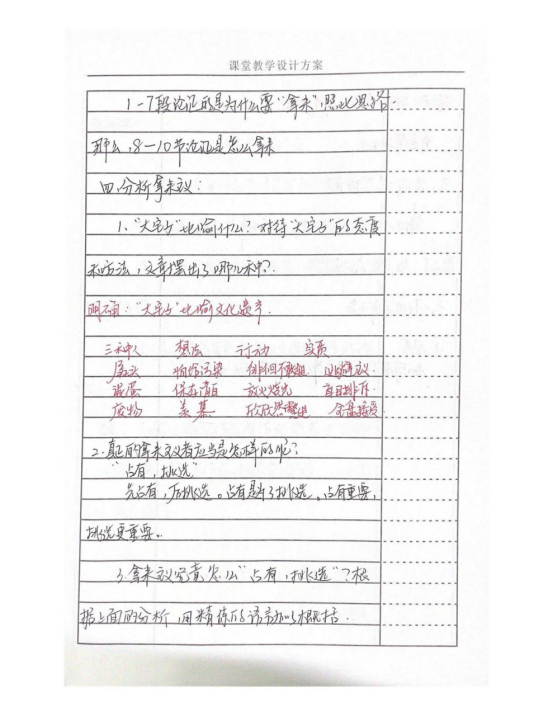 课堂教学设计方案
1-7段论证的是为什么要“拿来”,照此思路.
那么,8-10节论证是怎么拿来
四.分析拿来主义:
1.“大宅子”比喻什么?对待“大宅子”的态度
和方法,文章摆出了哪几种?
明确:“大宅子”比喻文化遗产.
三种人 想法 行动 实质
孱头 怕给污染 徘徊不敢进
混蛋 保存清白 放火烧光 盲目排斥
废物 羡慕 欣欣然蹩进 全盘接受
2.真正的拿来主义者应当是怎样的呢?
“占有,挑选”
先占有,后挑选。占有是为了挑选。占有重要,
挑选更重要。
3.拿来主义究竟怎么“占有,挑选”?根
据上面的分析,用精炼的语言加以概括.